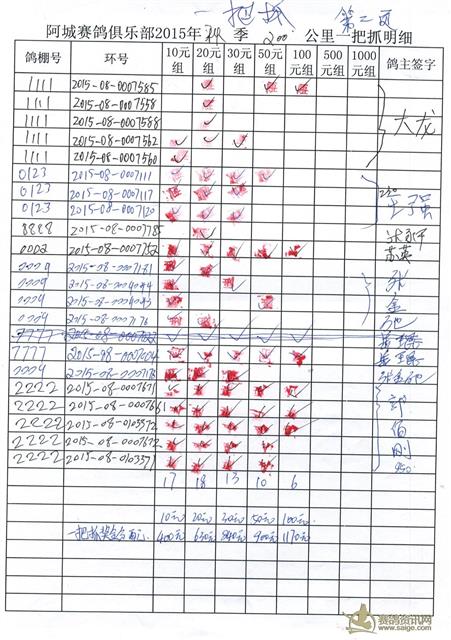 一把抓 第二页
阿城赛鸽俱乐部2015年秋季200公里一把抓明细
鸽棚号 环号 10元组 20元组 30元组 50元组 100元组 500元组 1000元组 鸽主签字
1111 2015-08-0007585
1111 2015-08-0007558
1111 2015-08-0007588 大龙
1111 2015-08-0007562
1111 2015-08-0007560
0123 2015-08-0007111
0123 2015-08-0007117 王强
0123 2015-08-0007120
8888 2015-08-0007785
0002 2015-08-0007752 苏英
0009 2015-08-0007181
0009
0009 金
0009 2015-08-0007176 弛
7777
7777 2015-08-0007004
0009
2222 2015-08-0007671
2222 2015-08-0007661
2222 2015-08-0103572
2222 2015-08-0007672 刚
2222 2015-08-010357
17 18 13 10 6
10元 20元 30元 50元 100元
400元 630元 840元 900元 1170元
赛鸽资讯网
www.saige.com